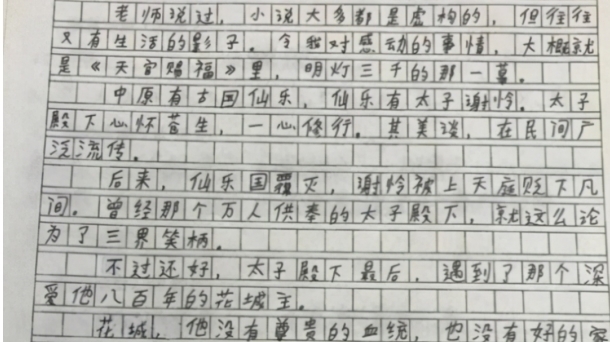 老师说过，小说大多都是虚构的，但往往
又有生活的影子。令我对感动的事情，大概就
是《天官赐福》里，明灯三千的那一幕。
中原有古国仙乐，仙乐有太子谢怜。太子
殿下心怀苍生，一心修行。其美谈，在民间广
泛流传。
后来，仙乐国覆灭，谢怜被上天庭贬下凡
间。曾经那个万人供奉的太子殿下，就这么沦
为了三界笑柄。
不过还好，太子殿下最后，遇到了那个深
爱他八百年的花城主。
花城，他没有尊贵的血统，也没有好的家